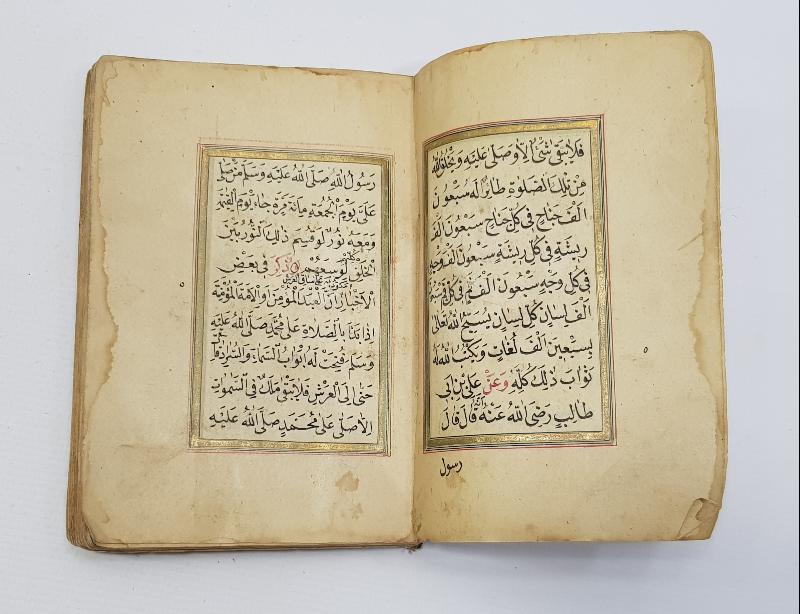 فَلَا يَبْقٰى شَىْءٌ اِلَّا وَصَلّٰى عَلَيْهِ وَيَخْلُقُ اللّٰهُ
مِنْ تِلْكَ الصَّلٰوةِ طَائِرًا لَهُ سَبْعُونَ
اَلْفَ جَنَاحٍ فِى كُلِّ جَنَاحٍ سَبْعُونَ اَلْفَ
رِيشَةٍ فِى كُلِّ رِيشَةٍ سَبْعُونَ اَلْفَ وَجْهٍ
فِى كُلِّ وَجْهٍ سَبْعُونَ اَلْفَ فَمٍ فِى كُلِّ فَمٍ سَبْعُونَ
اَلْفَ لِسَانٍ كُلُّ لِسَانٍ يُسَبِّحُ اللّٰهَ تَعَالٰى
بِسَبْعِينَ اَلْفَ لُغَاتٍ وَيَكْتُبُ اللّٰهُ لَهُ
ثَوَابَ ذٰلِكَ كُلِّهِ وَعَنْ عَلِىِّ بْنِ اَبِى
طَالِبٍ رَضِىَ اللّٰهُ عَنْهُ قَالَ قَالَ
رسول
رَسُولُ اللّٰهِ صَلَّى اللّٰهُ عَلَيْهِ وَسَلَّمَ مَنْ صَلّٰى
عَلَىَّ يَوْمَ الْجُمُعَةِ مِائَةَ مَرَّةٍ جَاءَ يَوْمَ الْقِيٰمَةِ
وَمَعَهُ نُورٌ لَوْ قُسِمَ ذٰلِكَ النُّورُ بَيْنَ
الْخَلْقِ كُلِّهِمْ لَوَسِعَهُمْ ذُكِرَ فِى بَعْضِ
مَكْتُوبٌ عَلٰى سَاقِ الْعَرْشِ
الْاَخْبَارِ اَنَّ الْعَبْدَ الْمُؤْمِنَ اَوِ الْاَمَةَ الْمُؤْمِنَةَ
اِذَا بَدَاَ بِالصَّلَاةِ عَلٰى مُحَمَّدٍ صَلَّى اللّٰهُ عَلَيْهِ
وَسَلَّمَ فُتِحَتْ لَهُ اَبْوَابُ السَّمَاءِ وَالسُّرَادِقَاتُ
حَتّٰى اِلَى الْعَرْشِ فَلَا يَبْقٰى مَلَكٌ فِى السَّمٰوَاتِ
اِلَّا صَلّٰى عَلٰى مُحَمَّدٍ صَلَّى اللّٰهُ عَلَيْهِ